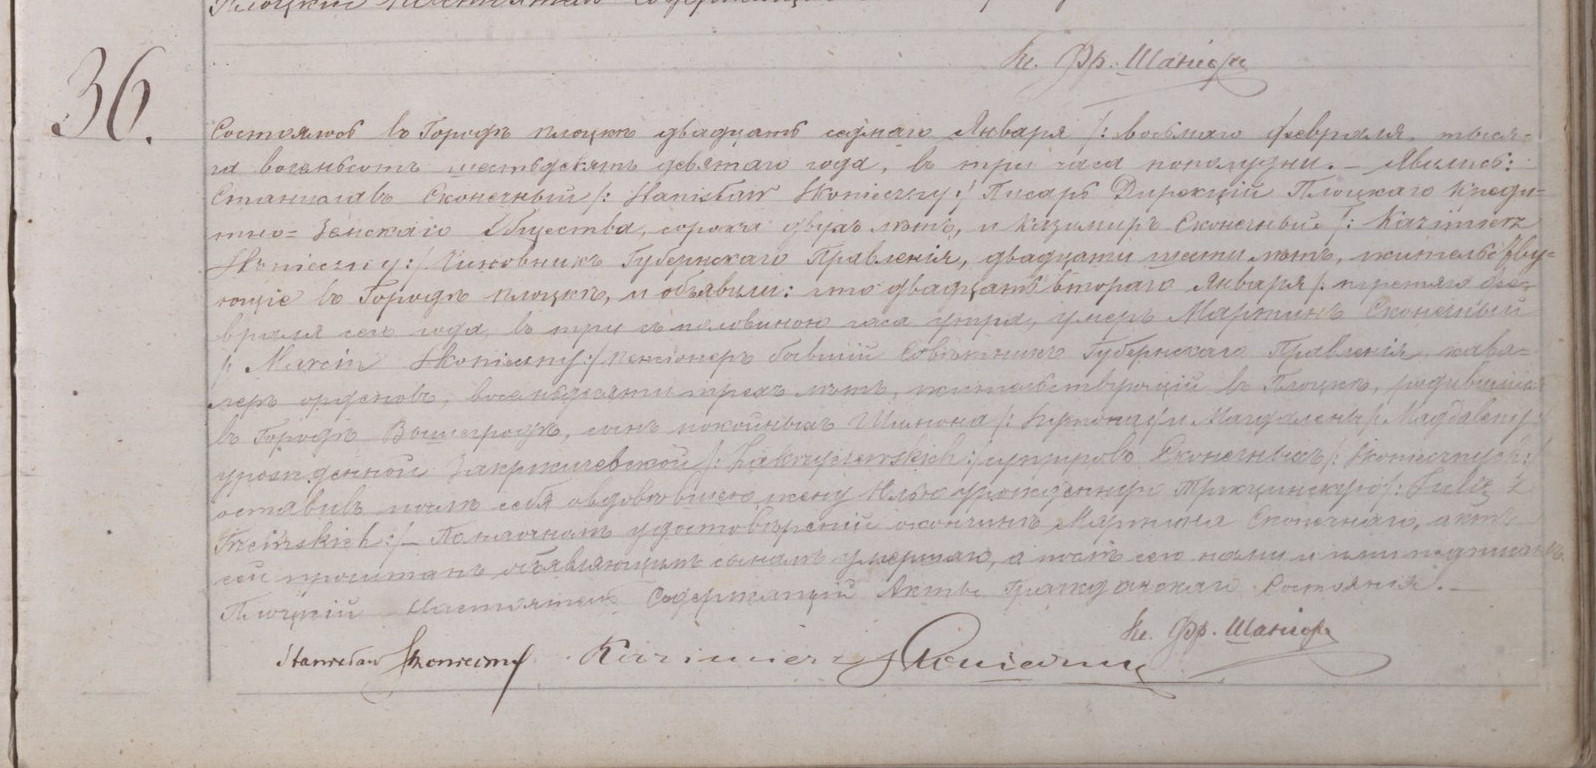 Плоцкий Настоятель Содержащій
Кс. Фр. Шаніоръ
36.
Состоялось въ Городѣ Плоцкѣ двадцать седмаго Января /: восьмаго Февраля, тыся-
ча восемьсотъ шестьдесятъ девятаго года, въ три часа пополудни. – Явились:
Станиславъ Сконечный /: Stanisław Skonieczny :/ Писарь Дирекціи Плоцкаго Креди-
тно= Земскаго Общества, сорока двухъ лѣтъ, и Казимиръ Сконечный /: Kazimierz
Skonieczny :/ Чиновникъ Губернскаго Правленія, двадцати шести лѣтъ, жительству-
ющіе въ Городѣ Плоцкѣ, и объявили: что двадцать втораго Января /: третьяго Фе-
враля сего года, въ три съ половиною часа утра, умеръ Мартинъ Сконечный
/: Marcin Skonieczny :/ пенсіонеръ бывшій Совѣтникъ Губернскаго Правленія, кава-
леръ орденовъ, восемьдесяти трехъ лѣтъ, жительствующій въ Плоцкѣ, родившійся
въ Городѣ Вышегродѣ, сынъ покойныхъ Шимона /: Szymona :/ и Магдалены /: Magdaleny :/
урожденной Закржичевской /: Zakrzyczewskich :/ супруговъ Сконечныхъ /: Skoniecznych :/
оставивъ послѣ себя овдовѣвшею жену Юлію урожденную Тржцинскую /: Julię z
Trzcinskich :/ – По личномъ удостовѣреніи о кончинѣ Мартина Сконечнаго, актъ
сей прочитанъ, объявляющимъ сынамъ умершаго, а послѣ сего нами и ими подписанъ.
Плоцкій Настоятель Содержащій Акты Гражданскаго Состоянія. –
Кс. Фр. Шаніоръ
Stanisław Skonieczny Kazimierz Skonieczny